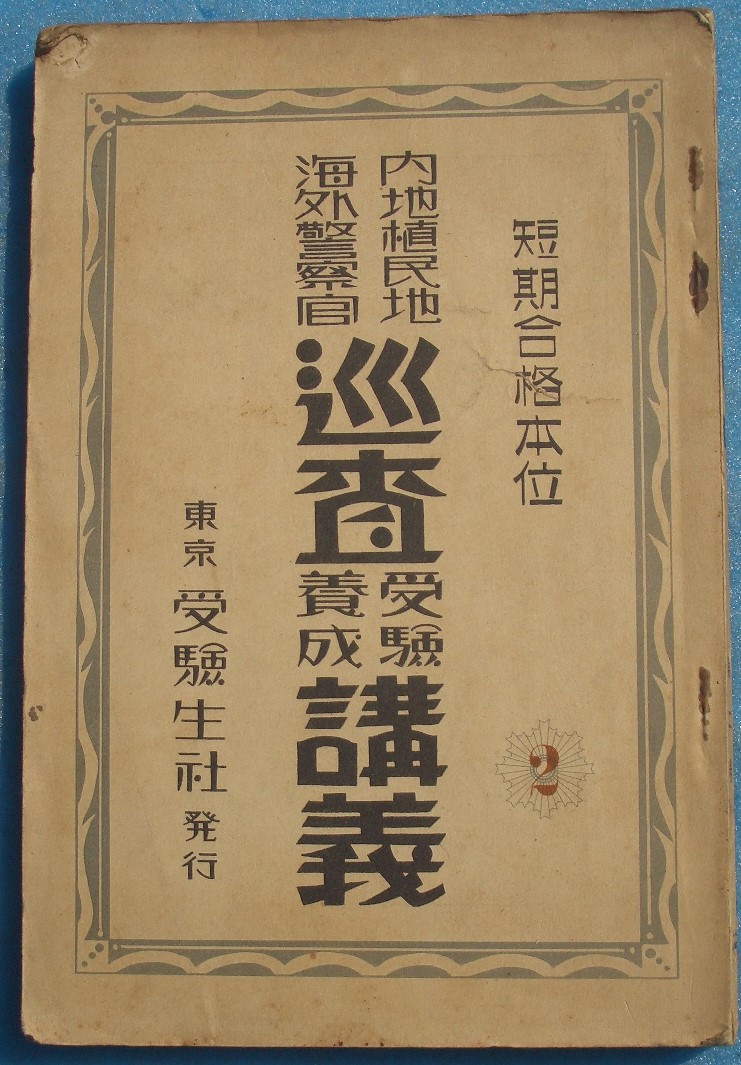 短期合格本位
内地植民地
海外警察官
巡査
受験
養成
講義
2
東京 受験生社 発行